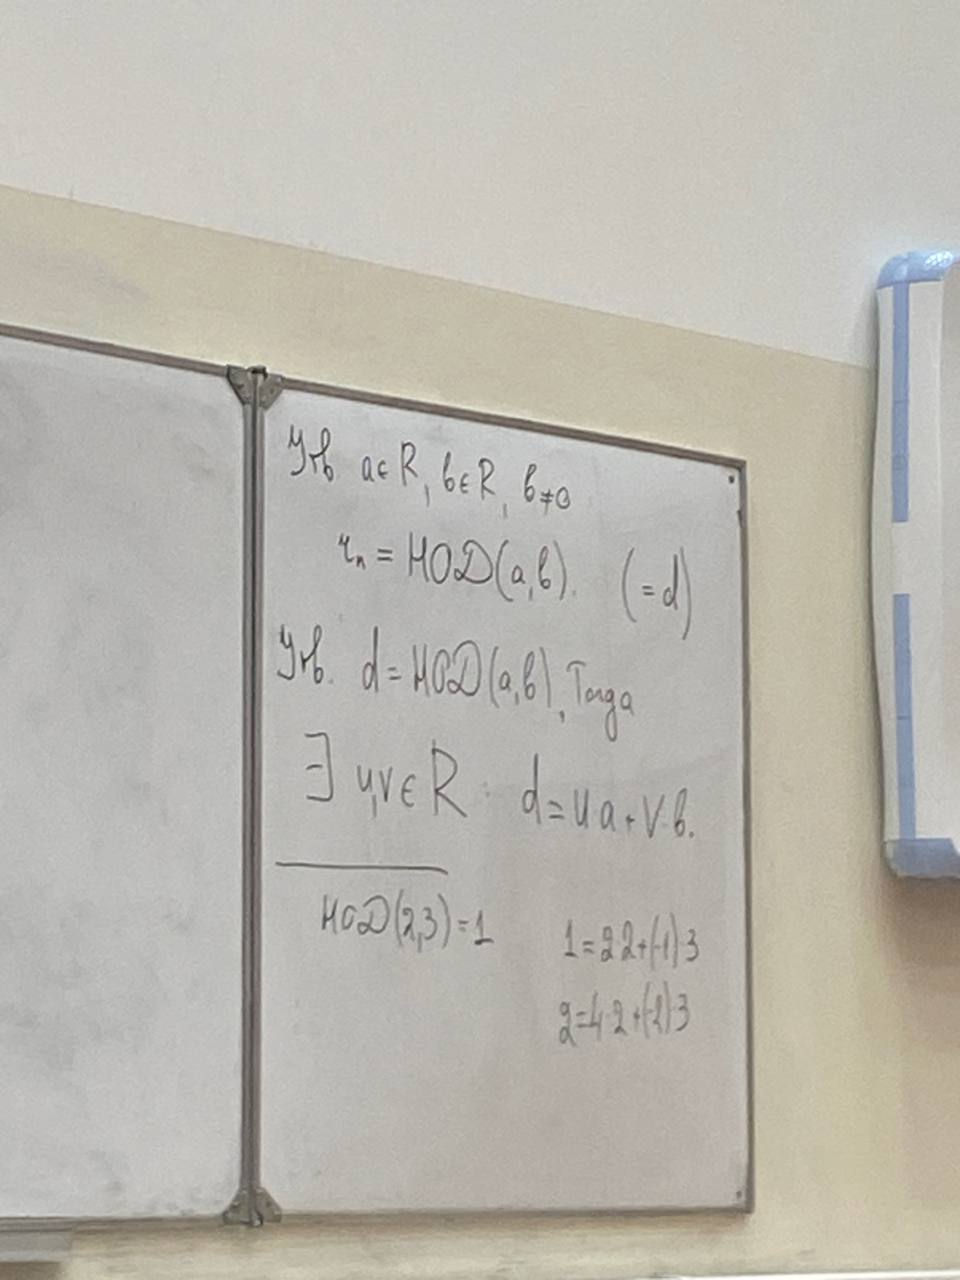 Утв. a∈R, b∈R, b≠0
r_n = НОД(a,b). (=d)
Утв. d=НОД(a,b), Тогда
∃ u,v∈R : d=u·a+v·b.
НОД(2,3)=1
1=2·2+(-1)·3
2=4·2+(-2)·3